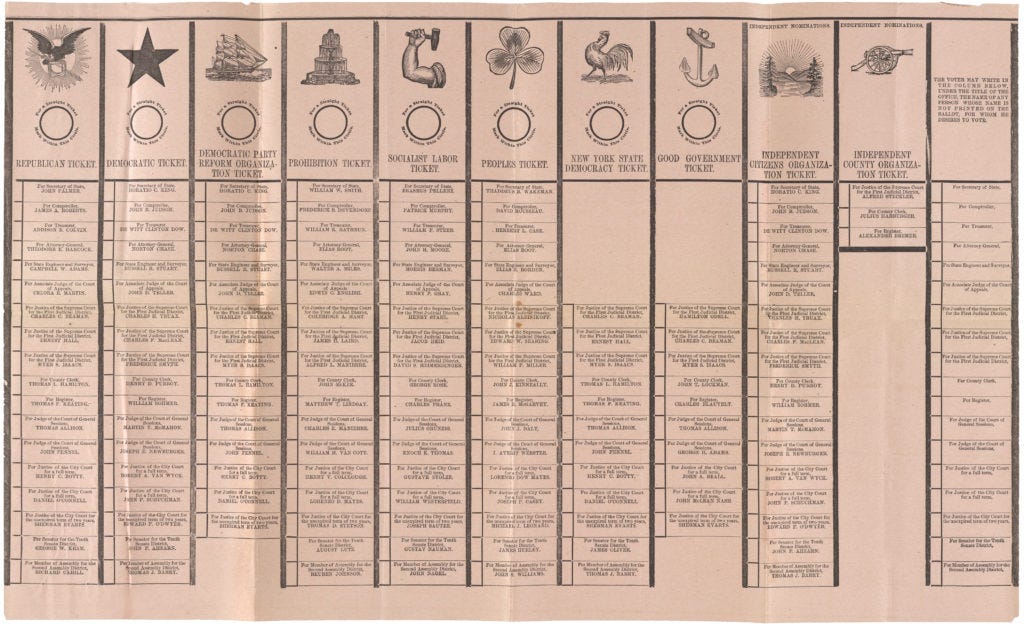 REPUBLICAN TICKET.
For Secretary of State,
JOHN PALMER.
For Comptroller,
JAMES A. ROBERTS.
For Treasurer,
ADDISON B. COLVIN.
For Attorney-General,
THEODORE E. HANCOCK.
For State Engineer and Surveyor,
CAMPBELL W. ADAMS.
For Associate Judge of the Court
of Appeals,
CELORA E. MARTIN.
For Justice of the Supreme Court
for the First Judicial District,
For Justice of the Supreme Court
for the First Judicial District,
ERNEST HALL.
For Justice of the Supreme Court
for the First Judicial District,
MYER S. ISAACS.
For County Clerk,
THOMAS L. HAMILTON.
For Register,
THOMAS F. KEATING.
For Judge of the Court of General
Sessions,
THOMAS ALLISON.
For Judge of the Court of General
Sessions,
JOHN FENNEL.
For Justice of the City Court
for a full term,
HENRY C. BOTTY.
For Justice of the City Court
for a full term,
For Justice of the City Court for
the unexpired term of two years,
SHERMAN EVARTS.
For Senator for the Tenth
Senate District,
GEORGE W. KHAN.
For Member of Assembly for the
Second Assembly District,
RICHARD CAHILL.
For a Straight Ticket
Mark Within This
DEMOCRATIC TICKET.
For Secretary of State,
HORATIO C. KING.
For Comptroller,
JOHN B. JUDSON.
For Treasurer,
DE WITT CLINTON DOW.
For Attorney-General,
NORTON CHASE.
For State Engineer and Surveyor,
RUSSELL R. STUART.
For Associate Judge of the Court
of Appeals,
JOHN D. TELLER.
For Justice of the Supreme Court
for the First Judicial District,
CHARLES H. TRUAX.
For Justice of the Supreme Court
for the First Judicial District,
CHARLES F. MacLEAN.
For Justice of the Supreme Court
for the First Judicial District,
FREDERICK SMYTH.
For County Clerk,
HENRY D. PURROY.
For Register,
WILLIAM SOHMER.
For Judge of the Court of General
Sessions,
MARTIN T. McMAHON.
For Judge of the Court of General
Sessions,
JOSEPH E. NEWBURGER.
For Justice of the City Court
for a full term,
ROBERT A. VAN WYCK.
For Justice of the City Court
for a full term,
JOHN P. SCHUCHMAN.
For Justice of the City Court for
the unexpired term of two years,
EDWARD F. O'DWYER.
For Senator for the Tenth
Senate District,
JOHN F. AHEARN.
For Member of Assembly for the
Second Assembly District,
THOMAS J. BARRY.
For a Straight Ticket
Mark Within This
DEMOCRATIC PARTY
REFORM ORGANIZA-
TION TICKET.
For Secretary of State,
HORATIO C. KING.
For Comptroller,
JOHN B. JUDSON.
For Treasurer,
DE WITT CLINTON DOW.
For Attorney-General,
NORTON CHASE.
For State Engineer and Surveyor,
RUSSELL R. STUART.
For Associate Judge of the Court
of Appeals,
JOHN D. TELLER.
For Justice of the Supreme Court
for the First Judicial District,
For Justice of the Supreme Court
for the First Judicial District,
ERNEST HALL.
For Justice of the Supreme Court
for the First Judicial District,
MYER S. ISAACS.
For County Clerk,
THOMAS L. HAMILTON.
For Register,
THOMAS F. KEATING.
For Judge of the Court of General
Sessions,
THOMAS ALLISON.
For Judge of the Court of General
Sessions,
JOHN FENNEL.
For Justice of the City Court
for a full term,
HENRY C. BOTTY.
For Justice of the City Court
for a full term,
For Justice of the City Court for
the unexpired term of two years,
SHERMAN EVARTS.
For a Straight Ticket
Mark Within This
PROHIBITION TICKET.
For Secretary of State,
WILLIAM W. SMITH.
For Comptroller,
For Treasurer,
WILLIAM R. RATHBUN.
For Attorney-General,
ELIAS ROOT.
For State Engineer and Surveyor,
WALTER A. MILES.
For Associate Judge of the Court
of Appeals,
EDWIN C. ENGLISH.
For Justice of the Supreme Court
for the First Judicial District,
COLERIDGE A. HART.
For Justice of the Supreme Court
for the First Judicial District,
JAMES H. LAIRD.
For Justice of the Supreme Court
for the First Judicial District,
ALFRED L. MANIERRE.
For County Clerk,
JOHN McKEE.
For Register,
MATTHEW T. LINDSAY.
For Judge of the Court of General
Sessions,
CHARLES E. MANIERRE.
For Judge of the Court of General
Sessions,
WILLIAM H. VAN COTT.
For Justice of the City Court
for a full term,
For Justice of the City Court
for a full term,
For Justice of the City Court for
the unexpired term of two years,
THOMAS D. STETSON.
For Senator for the Tenth
Senate District,
AUGUST LUTZ.
For Member of Assembly for the
Second Assembly District,
REUBEN JOHNSON.
For a Straight Ticket
Mark Within This
SOCIALIST LABOR
TICKET.
For Secretary of State,
For Comptroller,
PATRICK MURPHY.
For Treasurer,
WILLIAM F. STEER.
For Attorney-General,
JOHN H. MOORE.
For State Engineer and Surveyor,
MORRIS BERMAN.
For Associate Judge of the Court
of Appeals,
HENRY P. GRAY.
For Justice of the Supreme Court
for the First Judicial District,
HENRY STAHL.
For Justice of the Supreme Court
for the First Judicial District,
JACOB HEID.
For Justice of the Supreme Court
for the First Judicial District,
For County Clerk,
GEORGE ROSE.
For Register,
CHARLES FRANZ.
For Judge of the Court of General
Sessions,
JULIUS GRUNZIG.
For Judge of the Court of General
Sessions,
ENOCH K. THOMAS.
For Justice of the City Court
for a full term,
GUSTAVE STOLZE.
For Justice of the City Court
for a full term,
WILLIAM WINTERFELD.
For Justice of the City Court for
the unexpired term of two years,
JOSEPH SAUTER.
For Senator for the Tenth
Senate District,
GUSTAV NAUMAN.
For Member of Assembly for the
Second Assembly District,
JOHN NAGEL.
For a Straight Ticket
Mark Within This
PEOPLES TICKET.
For Secretary of State,
THADDEUS B. WAKEMAN.
For Comptroller,
DAVID ROUSSEAU.
For Treasurer,
HERBERT L. CASE.
For Attorney-General,
ELIAS ROOT.
For State Engineer and Surveyor,
ELIAS E. BORDEN.
For Associate Judge of the Court
of Appeals,
CHARLES WARD.
For Justice of the Supreme Court
for the First Judicial District,
NICHOLAS ALEINIKOFF.
For Justice of the Supreme Court
for the First Judicial District,
For Justice of the Supreme Court
for the First Judicial District,
WILLIAM F. MILLER.
For County Clerk,
JOHN J. KENEALLY.
For Register,
JAMES R. McGARVEY.
For Judge of the Court of General
Sessions,
JOHN A. BOLT.
For Judge of the Court of General
Sessions,
J. AVERY WEBSTER.
For Justice of the City Court
for a full term,
LORENZO DOW MAYES.
For Justice of the City Court
for a full term,
For Justice of the City Court for
the unexpired term of two years,
MICHAEL J. LEONARD.
For Senator for the Tenth
Senate District,
JAMES HURLEY.
For Member of Assembly for the
Second Assembly District,
JOHN S. WILLIAMS.
For a Straight Ticket
Mark Within This
NEW YORK STATE
DEMOCRACY TICKET.
For Justice of the Supreme Court
for the First Judicial District,
CHARLES C. BEAMAN.
For Justice of the Supreme Court
for the First Judicial District,
ERNEST HALL.
For Justice of the Supreme Court
for the First Judicial District,
MYER S. ISAACS.
For County Clerk,
THOMAS L. HAMILTON.
For Register,
THOMAS F. KEATING.
For Judge of the Court of General
Sessions,
THOMAS ALLISON.
For Judge of the Court of General
Sessions,
JOHN FENNEL.
For Justice of the City Court
for a full term,
HENRY C. BOTTY.
For Justice of the City Court
for a full term,
DANIEL O'CONNELL.
For Justice of the City Court for
the unexpired term of two years,
SHERMAN EVARTS.
For Senator for the Tenth
Senate District,
JAMES OLIVER.
For Member of Assembly for the
Second Assembly District,
THOMAS J. BARRY.
For a Straight Ticket
Mark Within This
GOOD GOVERNMENT
TICKET.
For Justice of the Supreme Court
for the First Judicial District,
HAMILTON ODELL.
For Justice of the Supreme Court
for the First Judicial District,
CHARLES C. BEAMAN.
For Justice of the Supreme Court
for the First Judicial District,
MYER S. ISAACS.
For County Clerk,
JOHN T. LOCKMAN.
For Register,
CHARLES BLAUVELT.
For Judge of the Court of General
Sessions,
THOMAS ALLISON.
For Judge of the Court of General
Sessions,
GEORGE H. ADAMS.
For Justice of the City Court
for a full term,
JOHN A. BEALL.
For Justice of the City Court
for a full term,
For Justice of the City Court for
the unexpired term of two years,
SHERMAN EVARTS.
For a Straight Ticket
Mark Within This
INDEPENDENT NOMINATIONS.
INDEPENDENT
CITIZENS ORGANIZA-
TION TICKET.
For Secretary of State,
HORATIO C. KING.
For Comptroller,
JOHN B. JUDSON.
For Treasurer,
DE WITT CLINTON DOW.
For Attorney-General,
NORTON CHASE.
For State Engineer and Surveyor,
RUSSELL R. STUART.
For Associate Judge of the Court
of Appeals,
JOHN D. TELLER.
For Justice of the Supreme Court
for the First Judicial District,
CHARLES H. TRUAX.
For Justice of the Supreme Court
for the First Judicial District,
CHARLES F. MacLEAN.
For Justice of the Supreme Court
for the First Judicial District,
FREDERICK SMYTH.
For County Clerk,
HENRY D. PURROY.
For Register,
WILLIAM SOHMER.
For Judge of the Court of General
Sessions,
MARTIN T. McMAHON.
For Judge of the Court of General
Sessions,
JOSEPH E. NEWBURGER.
For Justice of the City Court
for a full term,
ROBERT A. VAN WYCK.
For Justice of the City Court
for a full term,
JOHN P. SCHUCHMAN.
For Justice of the City Court for
the unexpired term of two years,
EDWARD F. O'DWYER.
For Senator for the Tenth
Senate District,
JOHN F. AHEARN.
For Member of Assembly for the
Second Assembly District,
THOMAS J. BARRY.
INDEPENDENT NOMINATIONS.
INDEPENDENT
COUNTY ORGANIZA-
TION TICKET.
For Justice of the Supreme Court
for the First Judicial District,
ALFRED STECKLER.
For County Clerk,
JULIUS HARBURGER.
For Register,
ALEXANDER BREMER.
THE VOTER MAY WRITE IN
THE COLUMN BELOW,
UNDER THE TITLE OF THE
OFFICE, THE NAME OF ANY
PERSON WHOSE NAME IS
NOT PRINTED ON THE
BALLOT, FOR WHOM HE
DESIRES TO VOTE.
For Secretary of State,
For Comptroller,
For Treasurer,
For Attorney-General,
For State Engineer and Surveyor,
For Associate Judge of the Court
of Appeals,
For Justice of the Supreme Court
for the First Judicial District,
For Justice of the Supreme Court
for the First Judicial District,
For Justice of the Supreme Court
for the First Judicial District,
For County Clerk,
For Register,
For Judge of the Court of General
Sessions,
For Judge of the Court of
General Sessions,
For Justice of the City Court
for a full term,
For Justice of the City Court
for a full term,
For Justice of the City Court for
the unexpired term of two years,
For Senator for the Tenth
Senate District,
For Member of Assembly for the
Second Assembly District,